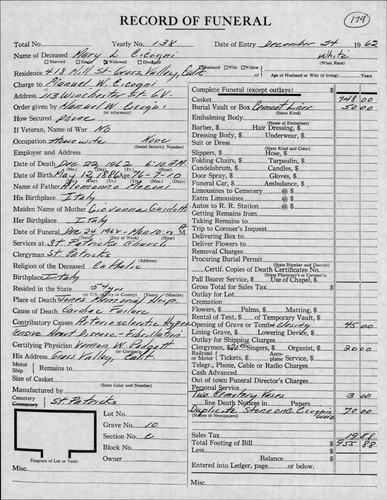 RECORD OF FUNERAL
179
Total No. Yearly No. 138 Date of Entry December 24 1962
Name of Deceased Mary L Cicogni White
(What Race)
Married Single Widowed Divorced
Residence 418 Mill St Grass Valley, Calif
Husband Wife Widow Age of Husband or Wife (if living) Years
Charge to Manuel W. Cicogni
Address 213 Winchester St G.V.
Order given by Manuel W Cicogni
(or informant)
How Secured phone
If Veteran, Name of War No
Occupation Housewife None
(Social Security Number)
Employer and Address
Date of Death Dec 22, 1962 6:10 A.M.
Date of Birth May 12, 1886 Age 76-7-10
Name of Father
His Birthplace Italy
Maiden Name of Mother Giovanna
Her Birthplace Italy
Date of Funeral Dec 24 1962
Services at St Patricks Church
Clergyman St Patricks
Religion of the Deceased Catholic
Birthplace Italy
Resided in the State 54 yr
Place of Death Jones Memorial Hosp
Cause of Death Cardiac Failure
Contributory Causes
Certifying Physician Vernon W. Padgett
(or Coroner)
His Address Grass Valley, Calif
Motor
Ship
Remains to
Size of Casket
(State Color and Number)
Manufactured by
Cemetery
Crematory St Patricks
Lot No.
Grave No. 10
Section No. C
Block No.
Owner
Diagram of Lot or Vault
Misc.
Complete Funeral (except outlays) $
Casket 748 00
Burial Vault or Box Cement Liner 50 00
(State Kind)
Embalming Body
(Name of Embalmer)
Barber, $ Hair Dressing, $
Dressing Body, $ Underwear, $
Suit or Dress
(State Kind and Color)
Slippers, $ Hose, $
Folding Chairs, $ Tarpaulin, $
Candelabrum, $ Candles, $
Door Spray, $ Gloves, $
Funeral Car, $ Ambulance, $
Limousines to Cemetery @ $
Extra Limousines @ $
Autos to R. R. Station @ $
Getting Remains from
Taking Remains to
Trip to Coroner's Inquest
Delivering Box to
Deliver Flowers to
Removal Charges
Procuring Burial Permit
Certif. Copies of Death Certificates No.
(State Physician's or Coroner's)
Pall Bearer Service, $ Use of Chapel, $
Gross Total for Sales Tax $
Outlay for Lot
Cremation
Flowers, $ Palms, $ Matting, $
Rental of Tent, $ of Temporary Vault, $
Opening of Grave or Tomb 45 00
Lining Grave, $ Lowering Device, $
Outlay for Shipping Charges
Clergymen, $ Singers, $ Organist, $ 20 00
Railroad or Motor Tickets, $ Aeroplane Service, $
Telegr., Phone, Cable or Radio Charges
Cash Advanced
Out of town Funeral Director's Charges
Personal Service
Two Cemetery Vases 3 00
line Death Notices in Papers
Duplicate Stone 70 00
Sales Tax 19 88
Total Footing of Bill $ 955 88
Less
Balance $
Entered into Ledger, page or below.
Misc.